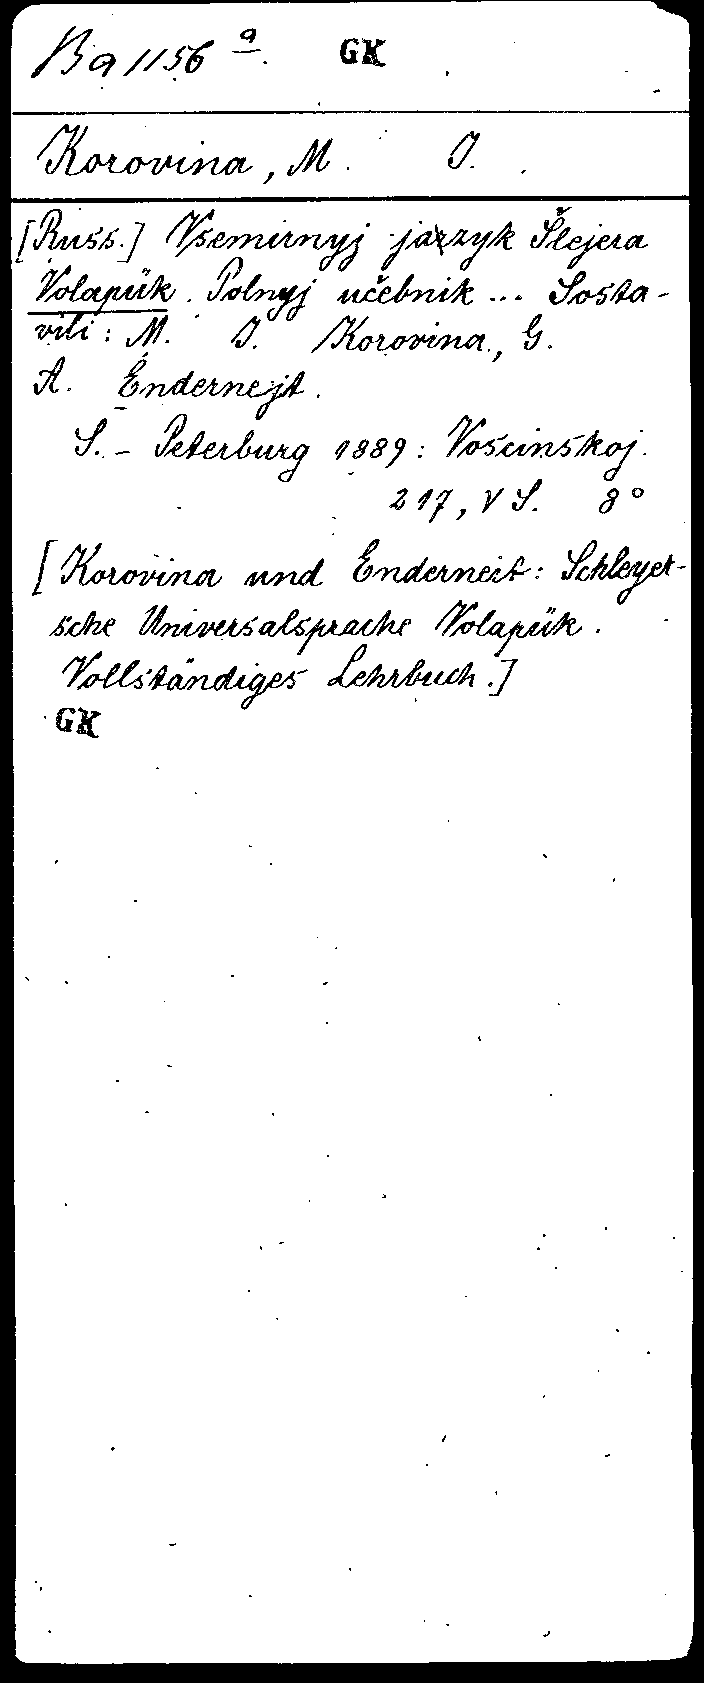 Ba 1156 a. GK
Korovina, M. I.
[Russ.] Vsemirnyj jazyk Šlejera
Volapük. Polnyj učebnik ... Sosta-
vili: M. I. Korovina, G.
A. Endernejt.
S.-Peterburg 1889: Voscinskoj.
217, V S. 8°
[Korovina und Enderneit: Schleyer-
sche Universalsprache Volapük.
Vollständiges Lehrbuch.]
GK